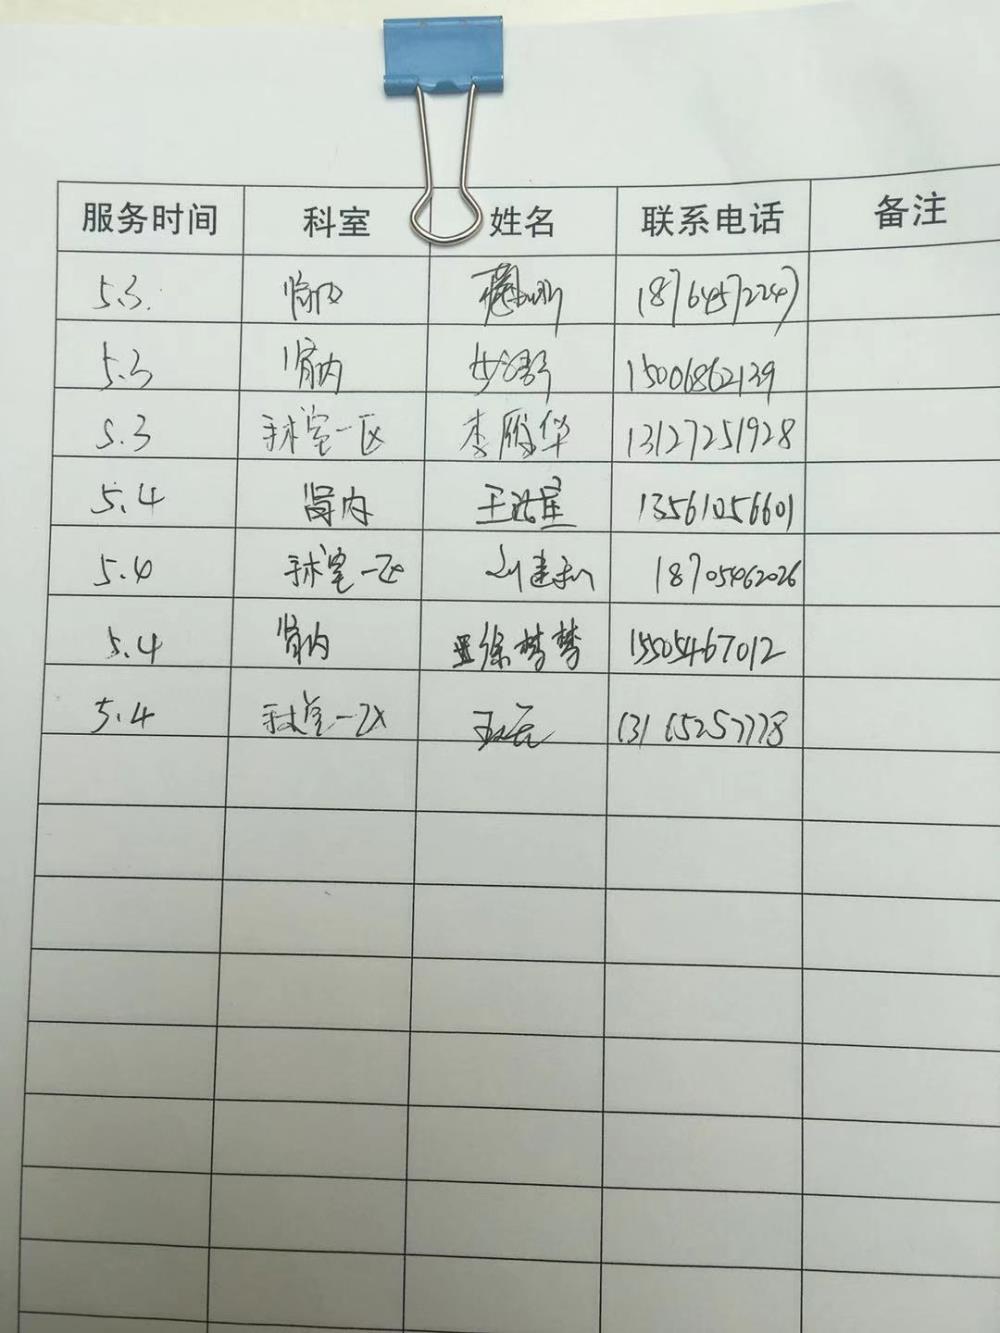 服务时间 科室 姓名 联系电话 备注
5.3. 肾内 18764572247
5.3 肾内 15006862139
5.3 手术室一区 李雁华 13127251928
5.4 肾内 13561056601
5.4 手术室一区 18705462026
5.4 肾内 徐梦梦 15505467012
5.4 手术室一区 13165257778